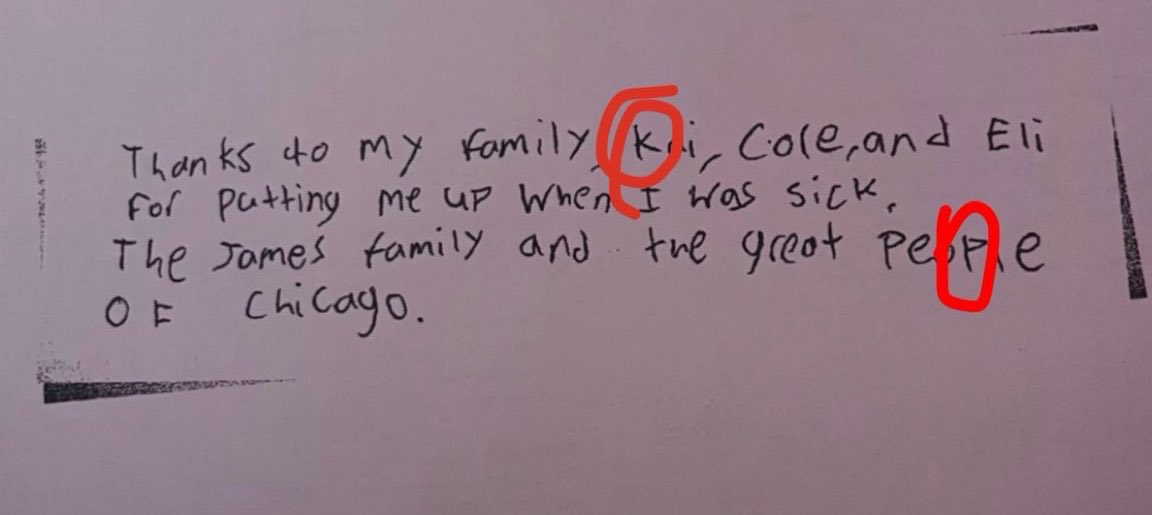 Thanks to my family, Kai, Cole, and Eli
For putting me up when I was sick.
The James family and the great people
OF Chicago.